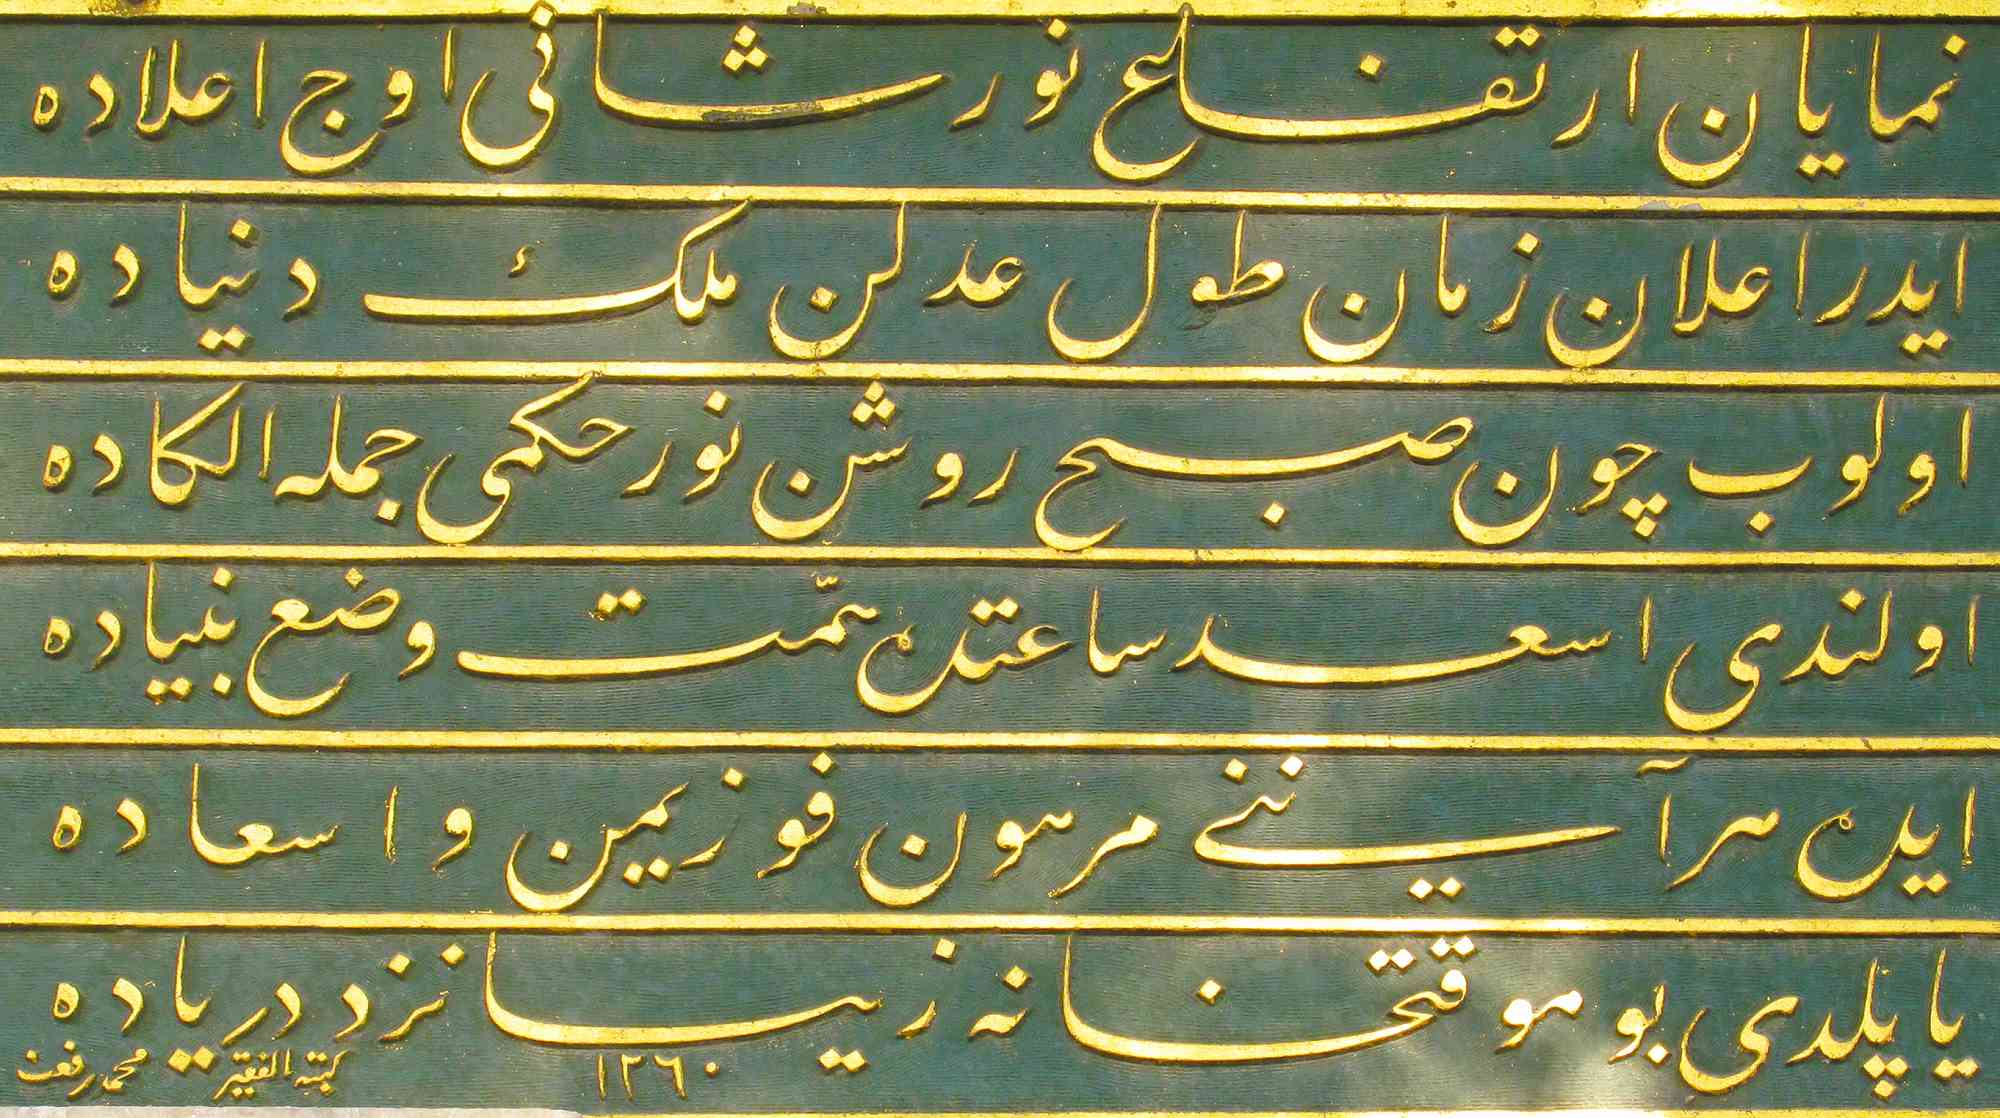 نمایان ارتفاع نور شانی اوج اعلاده
ایدر اعلان زمان طول عدلن ملكء دنیاده
اولوب چون صبح روشن نور حكمی جمله الكاده
اولندی اسعد ساعتده همّت وضع بنیاده
ایده هر آیینی مرهون فوز یمن واسعاده
یاپلدی بو موقتخانه زیبا نزد دریاده
١٢٦٠
كتبه الفقیر محمد رفعت